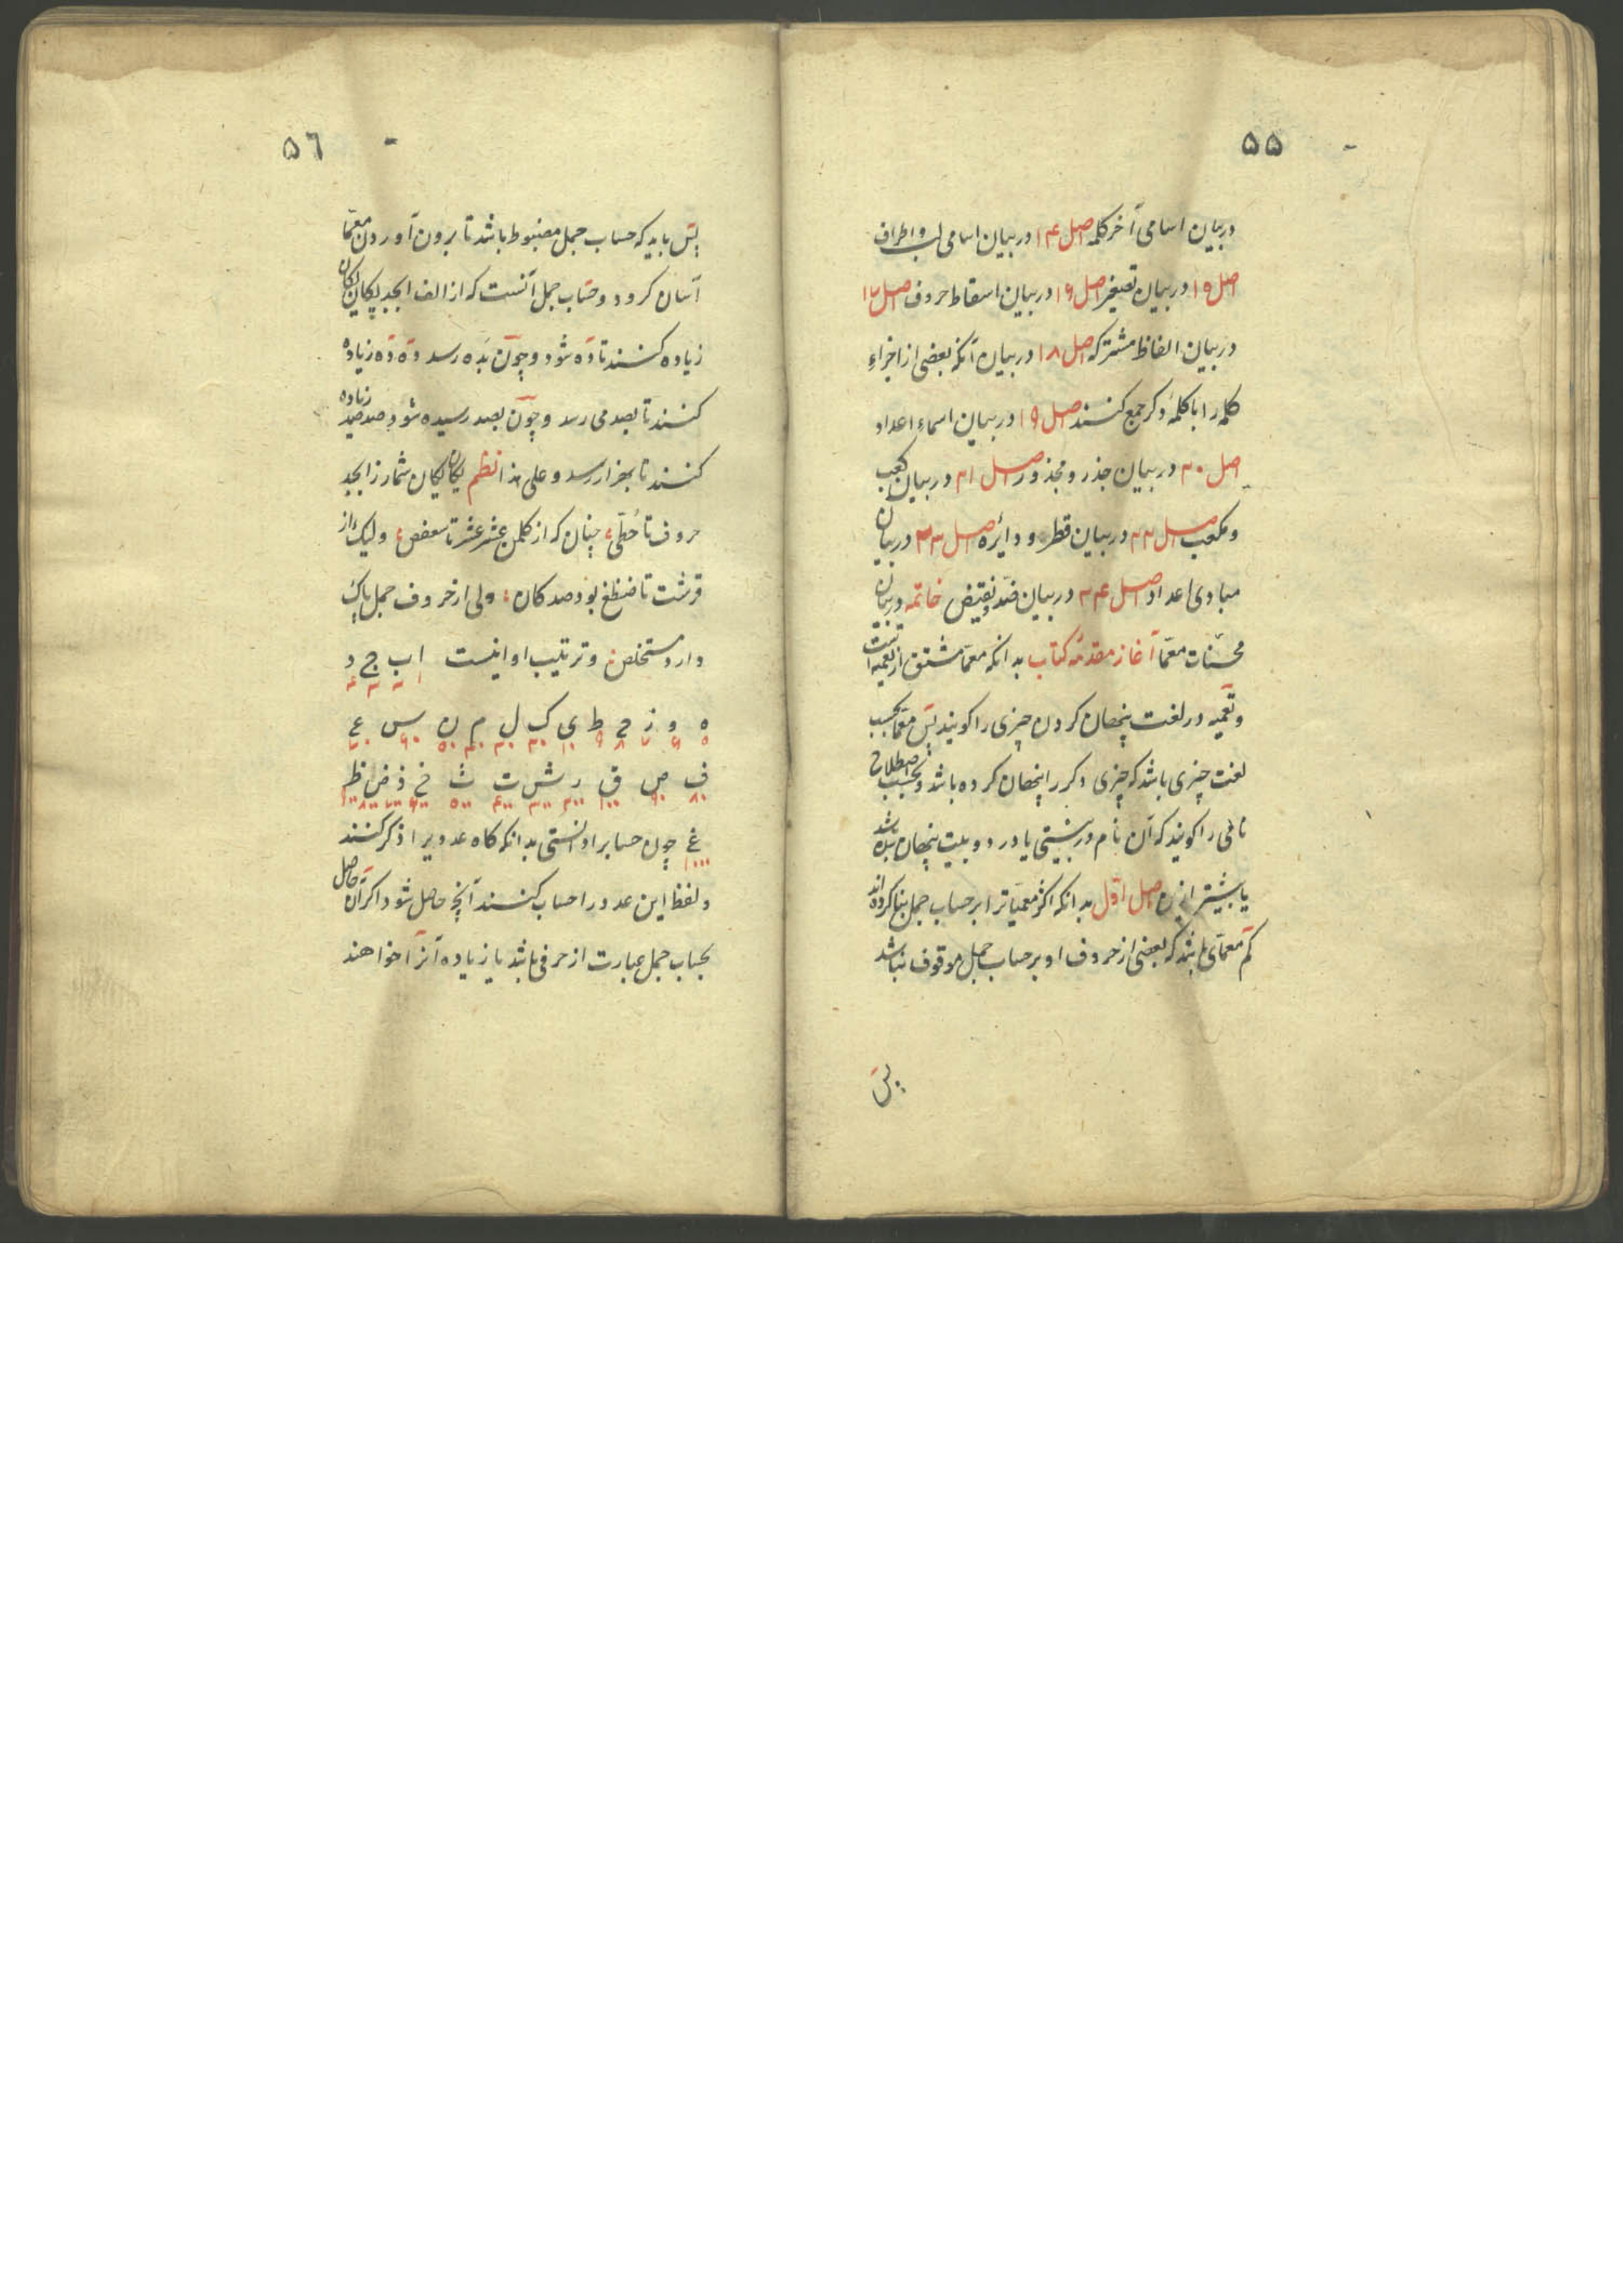 ۵۵
در بیان اسامی آخر کلمه اصل ۱۴ در بیان اسامی لب و اطراف
اصل ۱۵ در بیان تصغیر اصل ۱۶ در بیان اسقاط حروف اصل ۱۷
در بیان الفاظ مشترکه اصل ۱۸ در بیان آنکه بعضی از اجزاء
کلمه را با کلمهٔ دکر جمع کنند اصل ۱۹ در بیان اسماء اعداد
اصل ۲۰ در بیان جذر و مجذور اصل ۲۱ در بیان کعب
و مکعب اصل ۲۲ در بیان قطر و دائره اصل ۲۳ در بیان
مبادی اعداد اصل ۲۴ در بیان ضد و نقیض خاتمه در بیان
محسنات معمّا آغاز مقدمهٔ کتاب بدانکه معمّا مشتق از تعمیه است
و تعمیه در لغت پنهان کردن چیزی را کویند پس معمّا بحسب
لغت چیزی باشد که چیزی دکر را پنهان کرده باشد و بحسب اصطلاح
نامی را کویند که آن نام در بیتی یا در دو بیت پنهان شده باشد
یا بیشتر ازین اصل اوّل بدانکه اکثر معمیاترا بر حساب جمل بنا کرده اند
کم معمّای باشد که بعضی از حروف او بر حساب جمل موقوف نباشد
پس
۵٦
پس باید که حساب جمل مضبوط باشد تا برون آوردن معمّا
آسان کردد و حساب جمل آنست که از الف ابجد یکان یکان
زیاده کنند تا ده شود و چون بده رسد ده ده زیاده
کنند تا بصد می رسد و چون بصد رسیده شود صد صد زیاده
کنند تا بهزار رسد و علی هذا نظم یکان یکان شمار ز ابجد
حروف تا حُطّی چنان که از کلمن عشر عشر تا سعفص ولیک از
قرشت تا ضظغ بود صد کان ولی از حروف جمل پاک
دارد مستخلص و ترتیب او اینست ا ب ج د
۱ ۲ ۳ ۴
ه و ز ح ط ی ک ل م ن س ع
۵ ۶ ۷ ۸ ۹ ۱۰ ۲۰ ۳۰ ۴۰ ۵۰ ۶۰ ۷۰
ف ص ق ر ش ت ث خ ذ ض ظ
۸۰ ۹۰ ۱۰۰ ۲۰۰ ۳۰۰ ۴۰۰ ۵۰۰ ۶۰۰ ۷۰۰ ۸۰۰ ۹۰۰
غ چون حسابرا دانستی بدانکه کاه عددیرا ذکر کنند
۱۰۰۰
و لفظ این عدد را حساب کنند آنچه حاصل شود اکر آن حاصل
بحساب جمل عبارت از حرفی باشد یا زیاده آنرا خواهند